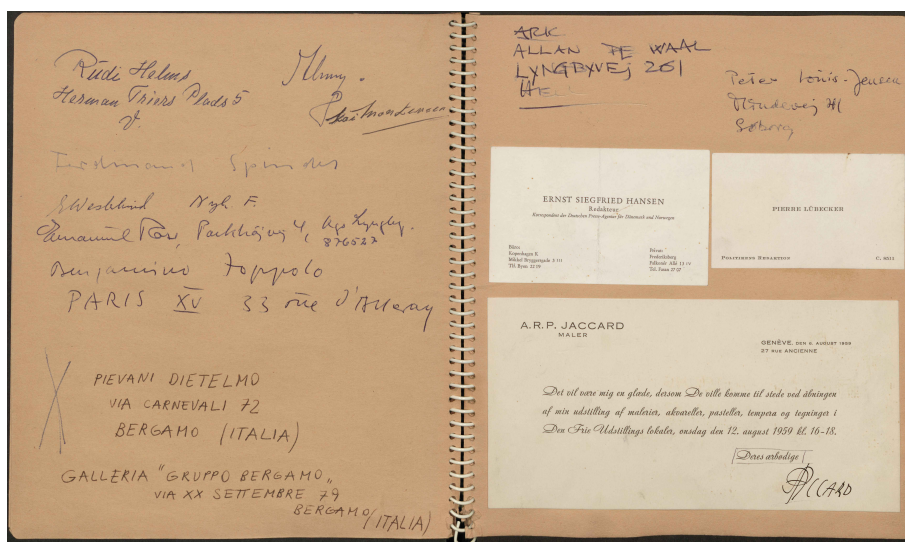 Rudi Helms
Herman Triers Plads 5
V.
Ferdinand Spindel
Nyk. F.
Emanuel Parkhøjvej 4, Kgs Lyngby.
876527
Benjamino Joppolo
PARIS XV 33 rue d'Alleray
PIEVANI DIETELMO
VIA CARNEVALI 72
BERGAMO (ITALIA)
GALLERIA "GRUPPO BERGAMO"
VIA XX SETTEMBRE 79
BERGAMO (ITALIA)
ARK
ALLAN DE WAAL
LYNGBYVEJ 261
Peter Louis-Jensen
41
Søborg
ERNST SIEGFRIED HANSEN
Redakteur
Korrespondent der Deutschen Presse-Agentur für Dänemark und Norwegen
Büro:
Kopenhagen K
Mikkel Bryggersgade 3
Tlf. Byen
Privat:
Frederiksberg
Falkoner Allé
Tlf. Fasan
PIERRE LÜBECKER
POLITIKENS REDAKTION C. 8511
A.R.P. JACCARD
MALER
GENÈVE, DEN 4. AUGUST 1959
27 RUE ANCIENNE
Det vil være mig en glæde, dersom De ville komme til stede ved åbningen
af min udstilling af malerier, akvareller, pasteller, tempera og tegninger i
Den Frie Udstillings lokaler, onsdag den 12. august 1959 kl. 16-18.
Deres ærbødige
JACCARD